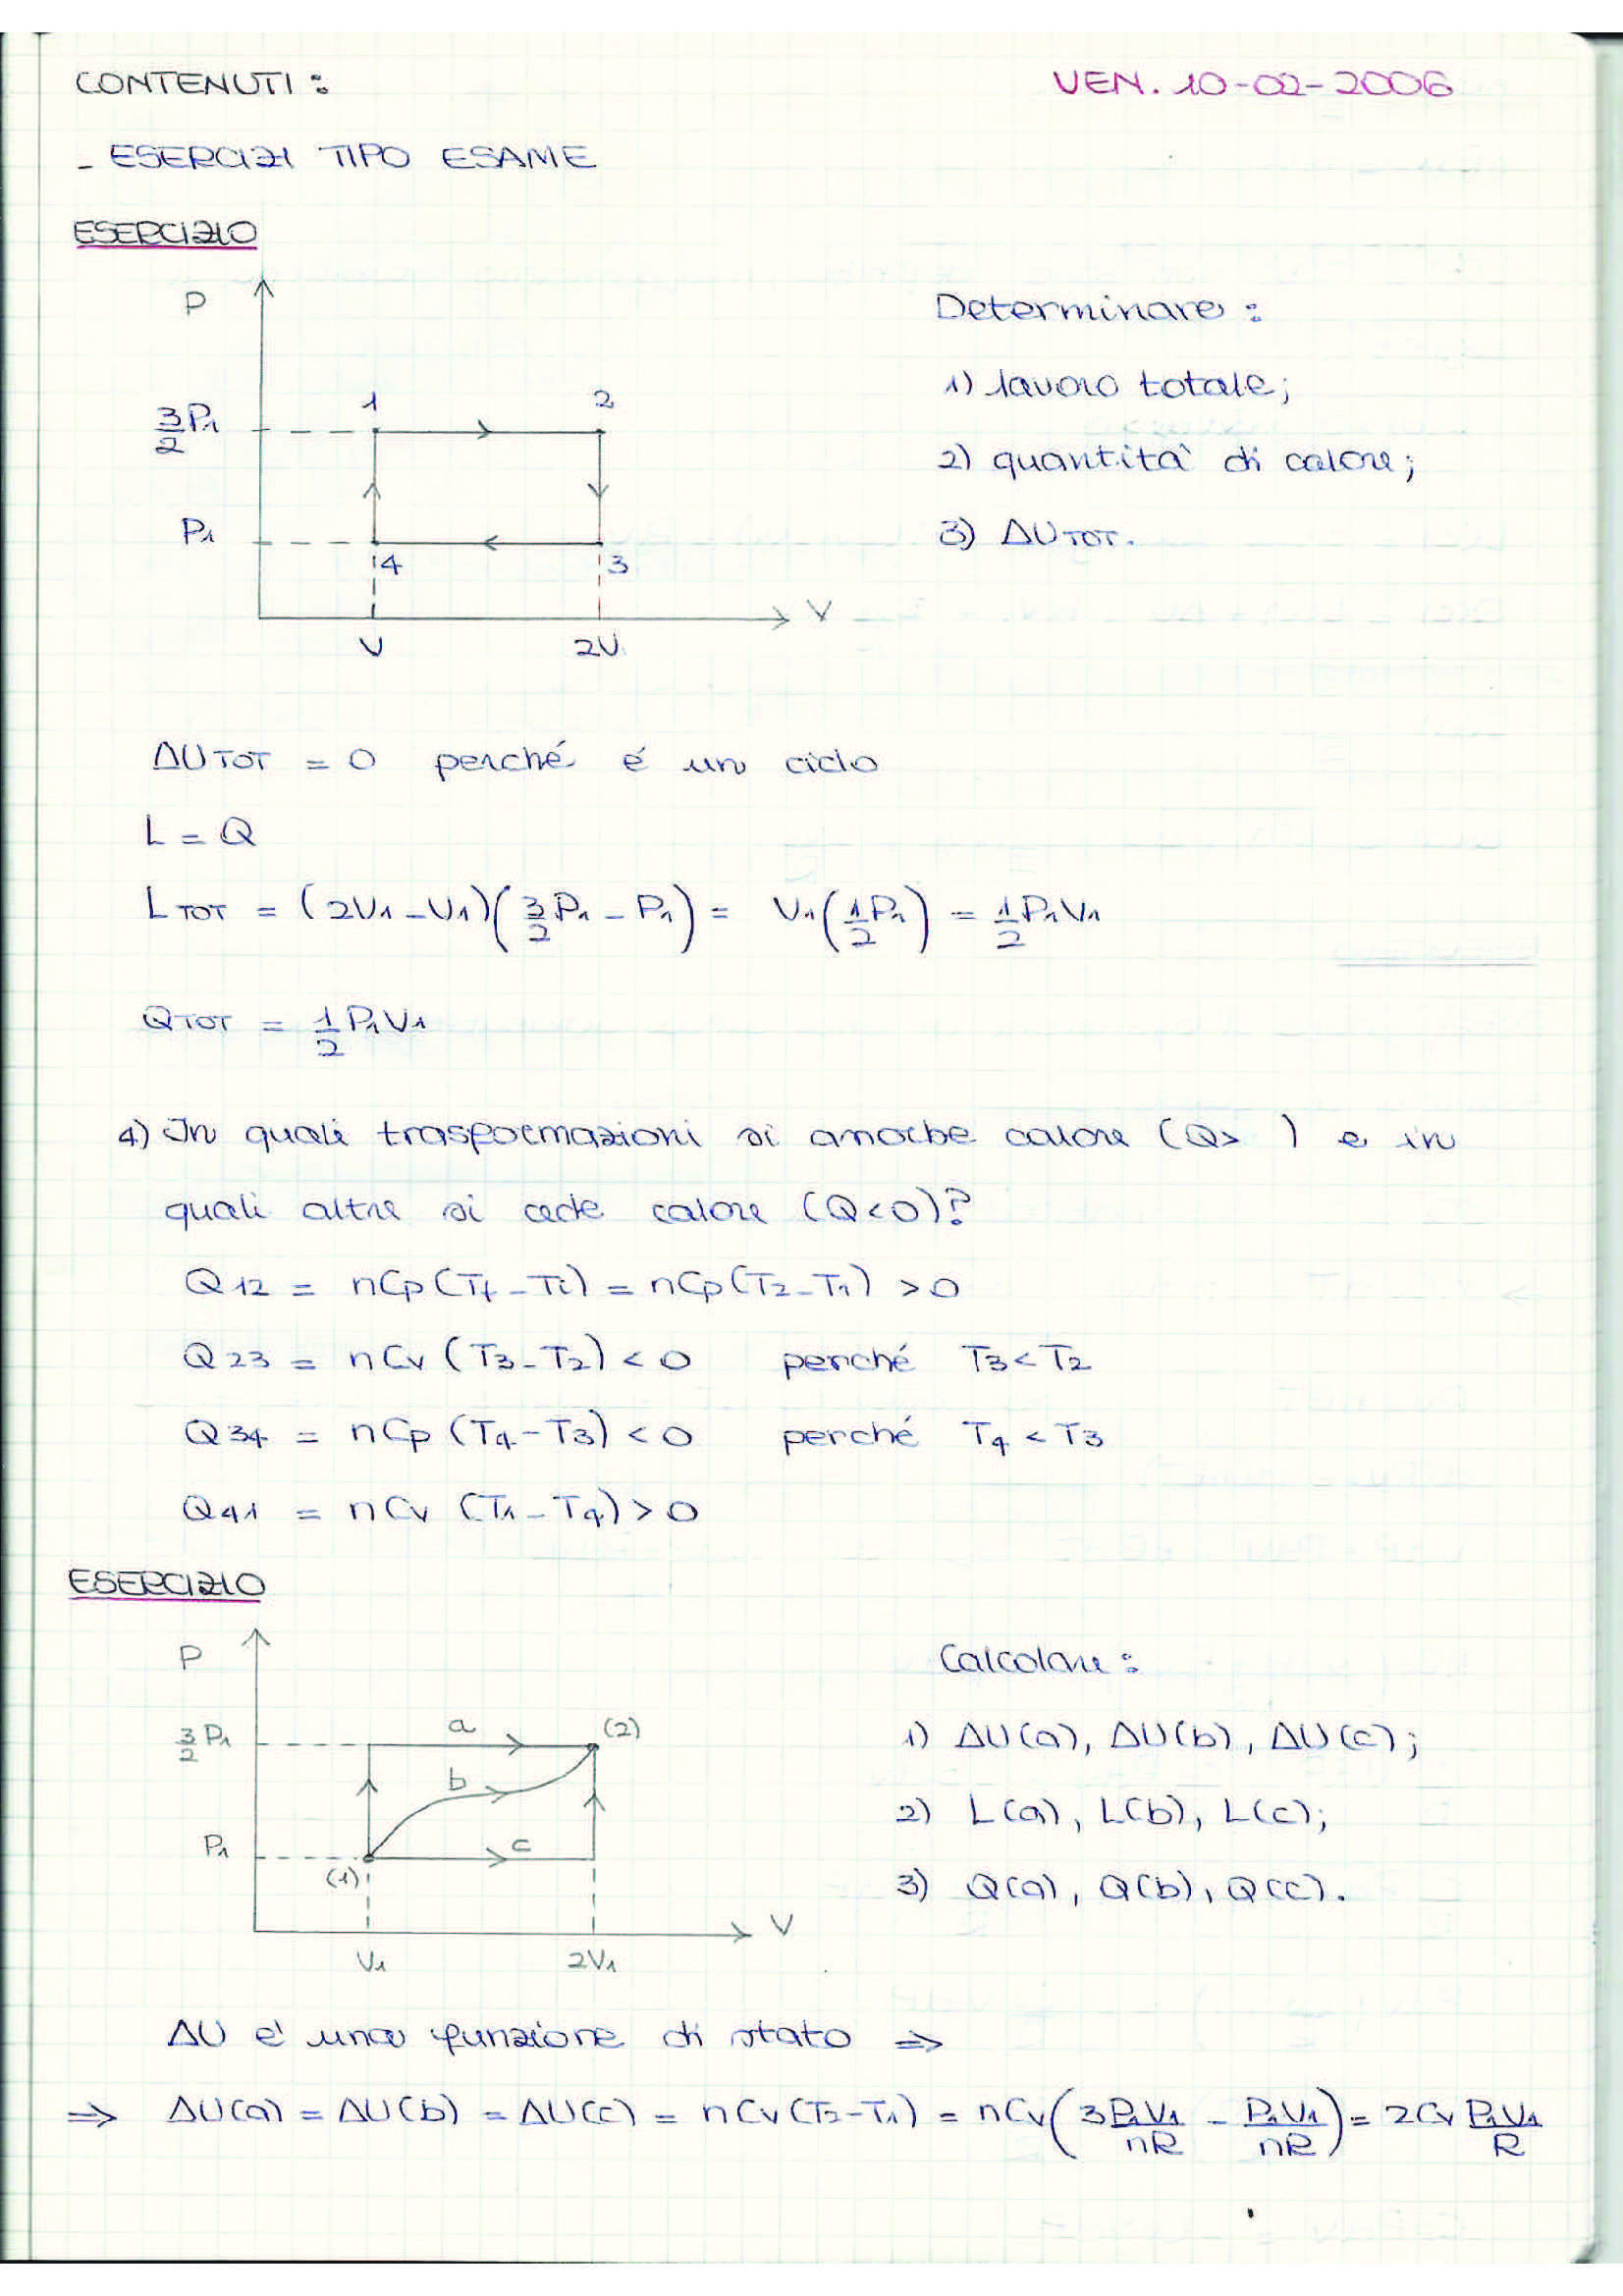 CONTENUTI: VEN. 10-02-2006
- ESERCIZI TIPO ESAME
ESERCIZIO
P
3/2 P1
P1
1 2
4 3
V
V 2V
Determinare:
1) lavoro totale;
2) quantità di calore;
3) ΔU TOT.
ΔU TOT = 0 perché é un ciclo
L = Q
L TOT = (2V1 - V1)(3/2 P1 - P1) = V1(1/2 P1) = 1/2 P1V1
Q TOT = 1/2 P1V1
4) In quali trasformazioni si assorbe calore (Q> ) e in
quali altre si cede calore (Q<0)?
Q12 = nCp(Tf - Ti) = nCp(T2 - T1) > 0
Q23 = nCv (T3 - T2) < 0 perché T3 < T2
Q34 = nCp (T4 - T3) < 0 perché T4 < T3
Q41 = nCv (T1 - T4) > 0
ESERCIZIO
P
3/2 P1
P1
a (2)
b
c
(1)
V
V1 2V1
Calcolare:
1) ΔU(a), ΔU(b), ΔU(c);
2) L(a), L(b), L(c);
3) Q(a), Q(b), Q(c).
ΔU e' una funzione di stato ⇒
⇒ ΔU(a) = ΔU(b) = ΔU(c) = nCv(T2 - T1) = nCv(3 P1V1/nR - P1V1/nR) = 2Cv P1V1/R